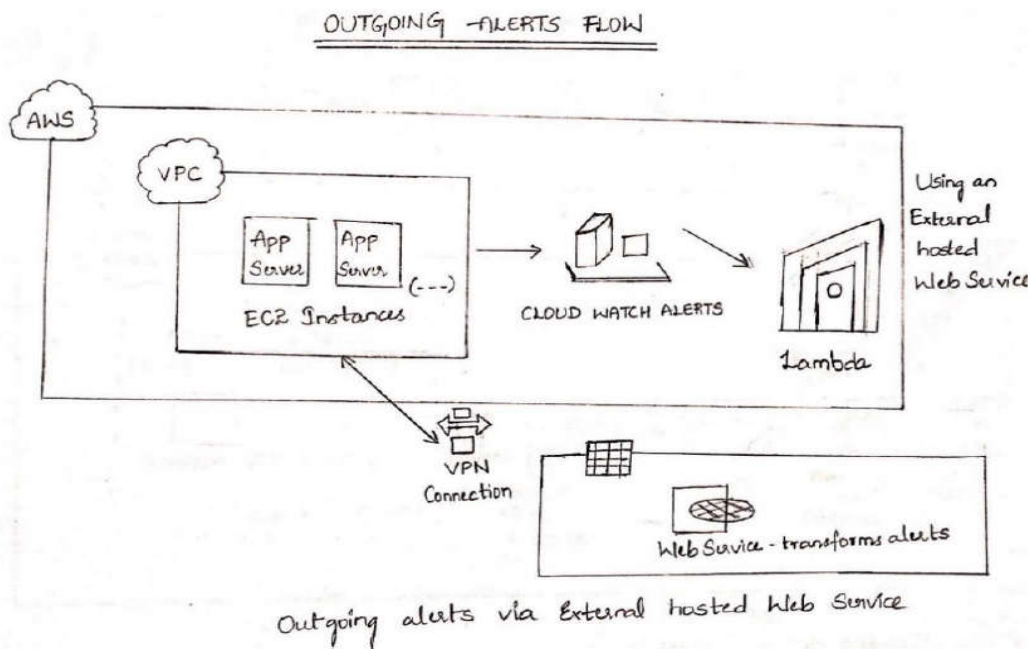 OUTGOING -ALERTS FLOW
AWS
VPC
App
Server
App
Server
(---)
EC2 Instances
CLOUD WATCH ALERTS
Lambda
Using an
External
hosted
Web Service
VPN
Connection
Web Service - transforms alerts
Outgoing alerts via External hosted Web Service